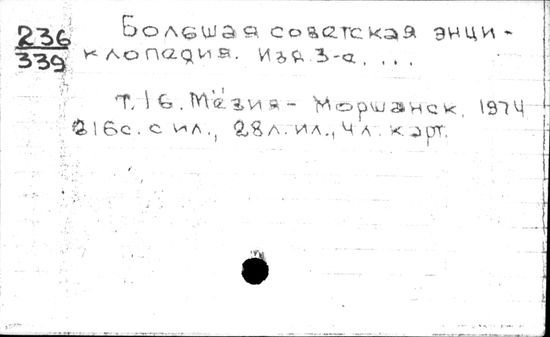 236
339
Большая советская энци-
клопедия. Изд. 3-е. ...
т. 16. Мёзия - Моршанск. 1974
616с. с ил., 28л. ил., 4л. карт.